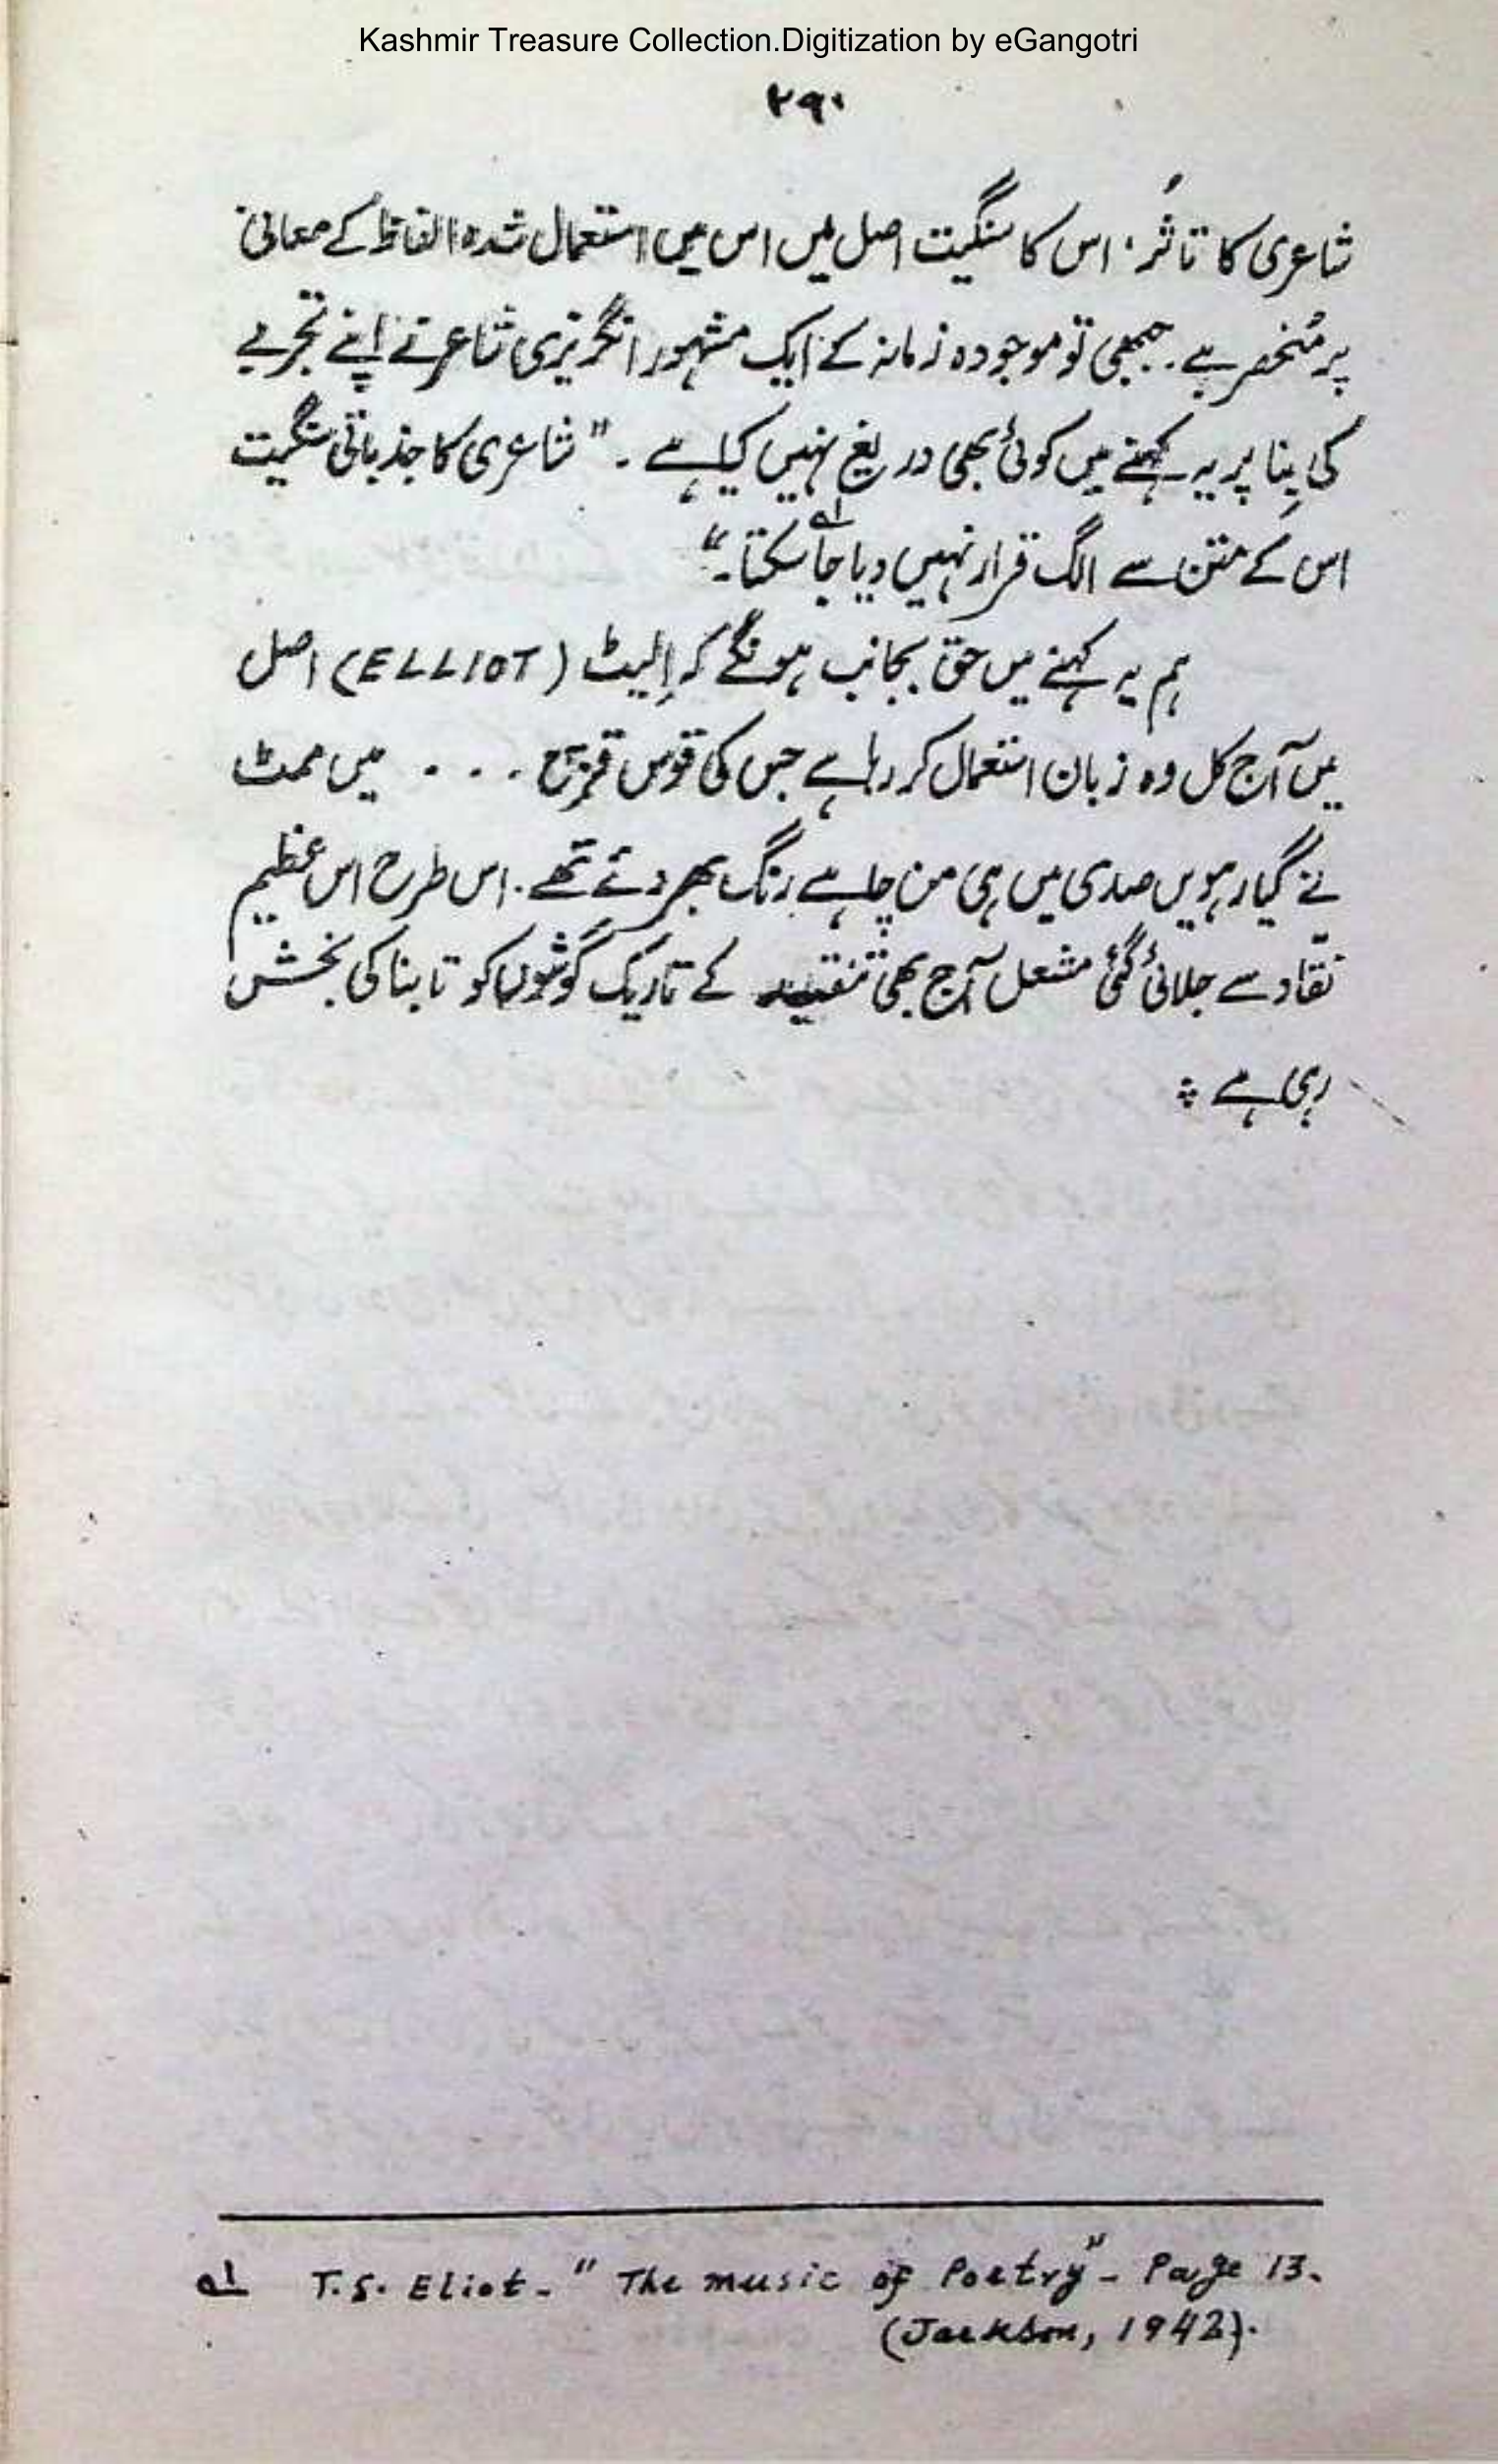 Kashmir Treasure Collection.Digitization by eGangotri
۲۹۰
شاعری کا تاثُر، اس کا سنگیت اصل میں اس میں استعمال شدہ الفاظ کے معانی
پر مُنحصر ہے۔ جبھی تو موجودہ زمانہ کے ایک مشہور انگریزی شاعر نے اپنے تجربے
کی بِنا پر یہ کہنے میں کوئی بھی دریغ نہیں کیا ہے ۔ "شاعری کا جذباتی سنگیت
اس کے متن سے الگ قرار نہیں دیا جا سکتا۔" ؂۱
ہم یہ کہنے میں حق بجانب ہونگے کہ اِلیٹ (ELLIOT) اصل
میں آج کل وہ زبان استعمال کر رہا ہے جس کی قوس قزح . . . میں ممٹ
نے گیارہویں صدی میں ہی من چاہے رنگ بھر دئے تھے۔ اس طرح اس عظیم
نقّاد سے جلائی گئی مشعل آج بھی تنقید کے تاریک گوشوں کو تابناکی بخش
رہی ہے ؞
؂۱ T.S. Eliot - "The music of Poetry" - Page 13.
(Jackson, 1942).